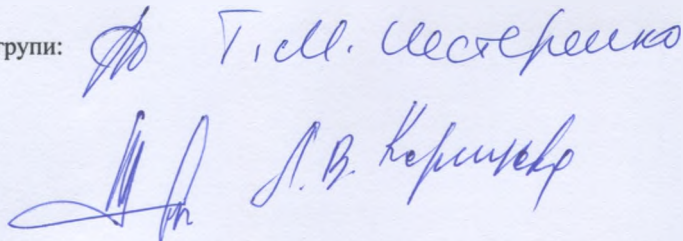 групи: Т.М. Нестеренко
Л.В. Корицька